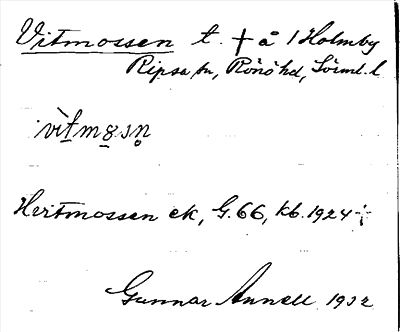 Vitmossen t. + å 1 Holmby
Ripsa sn, Rönö hd, Sörml. l
vìt̠m8̠sn̥
Hertmossen ek, G.66, kb. 1924
Gunnar Annell 1932